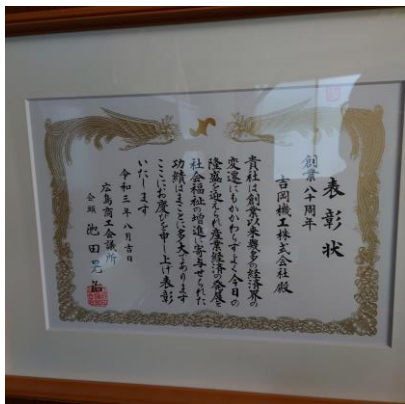 表彰状
創業八十周年
吉岡機工株式会社殿
貴社は創業以来幾多の経済界の
変遷にもかかわらずよく今日の
隆盛を迎えられ産業経済の発展と
社会福祉の増進に寄与せられた
功績はまことに多大であります
ここにお慶びを申し上げ表彰
いたします
令和三年八月吉日
広島商工会議所
会頭 池田晃治